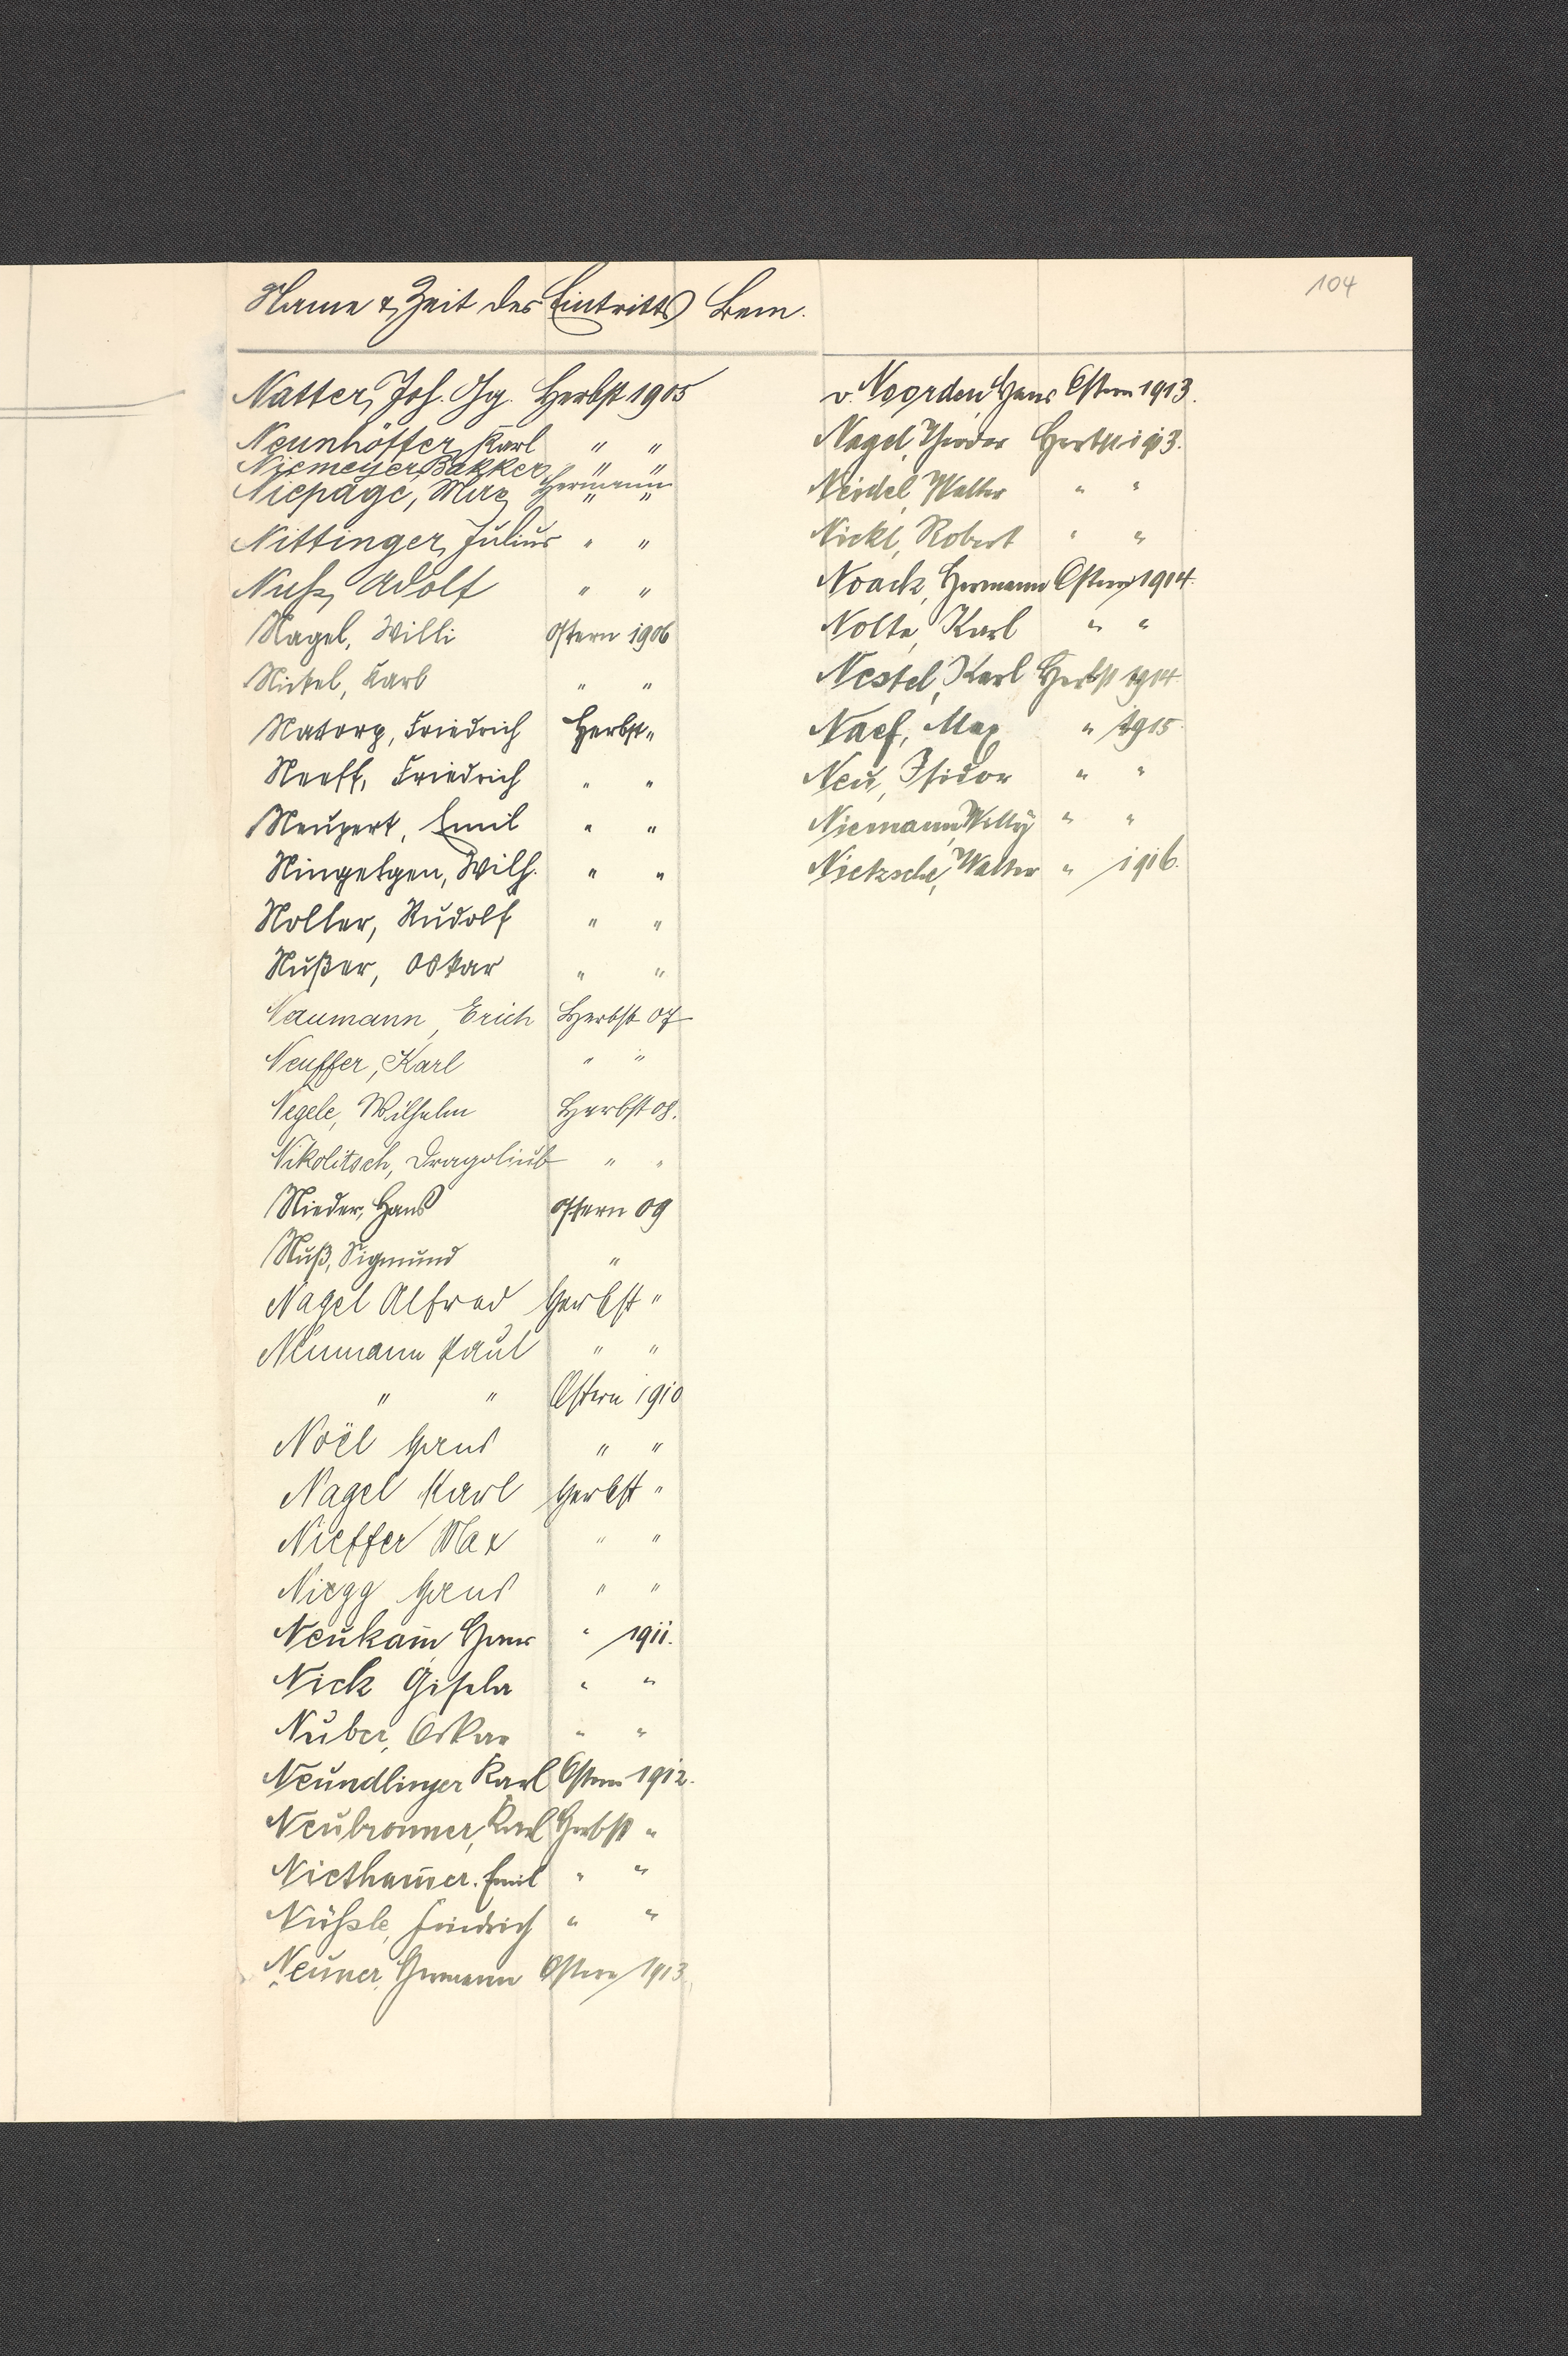 104
Name & Zeit des Eintritts Bem.
Natter, Joh. Gg. Herbst 1905
Neunhöffer, Karl " "
Niemeyer, Bakker, Hermann " "
Niepage, Max " "
Nittinger, Julius " "
Nuß, Adolf " "
Nagel, Willi Ostern 1906
Nickel, Karl " "
Natorp, Friedrich Herbst "
Neeff, Friedrich " "
Neupert, Emil " "
Ningelgen, Wilh. " "
Noller, Rudolf " "
Nußer, Oskar " "
Naumann, Erich Herbst 07
Neuffer, Karl " "
Negele, Wilhelm Herbst 08.
Nikolitsch, Dragoliub " "
Nieder, Hans Ostern 09
Nuß, Sigmund "
Nagel Alfred Herbst "
Neumann Paul " "
" " Ostern 1910
Noël Hans " "
Nagel Karl Herbst "
Nieffer Max " "
Niegg Hans " "
Neukam̅ Hans " 1911.
Nick Gisela " "
Nuber, Oskar " "
Neundlinger Karl Ostern 1912.
Neubronner, Karl Herbst "
Nietham̅er. Emil " "
Nüßle, Friedrich " "
Neuner, Hermann Ostern 1913.
v. Noorden Hans Ostern 1913.
Nagel, Theodor Herbst 1913.
Neidel, Walter " "
Nickl, Robert " "
Noack, Hermann Ostern 1914.
Nolte, Karl " "
Nestel, Karl Herbst 1914.
Naef, Max " 1915.
Neu, Isidor " "
Niemann, Willy " "
Nietzsche, Walter " 1916.